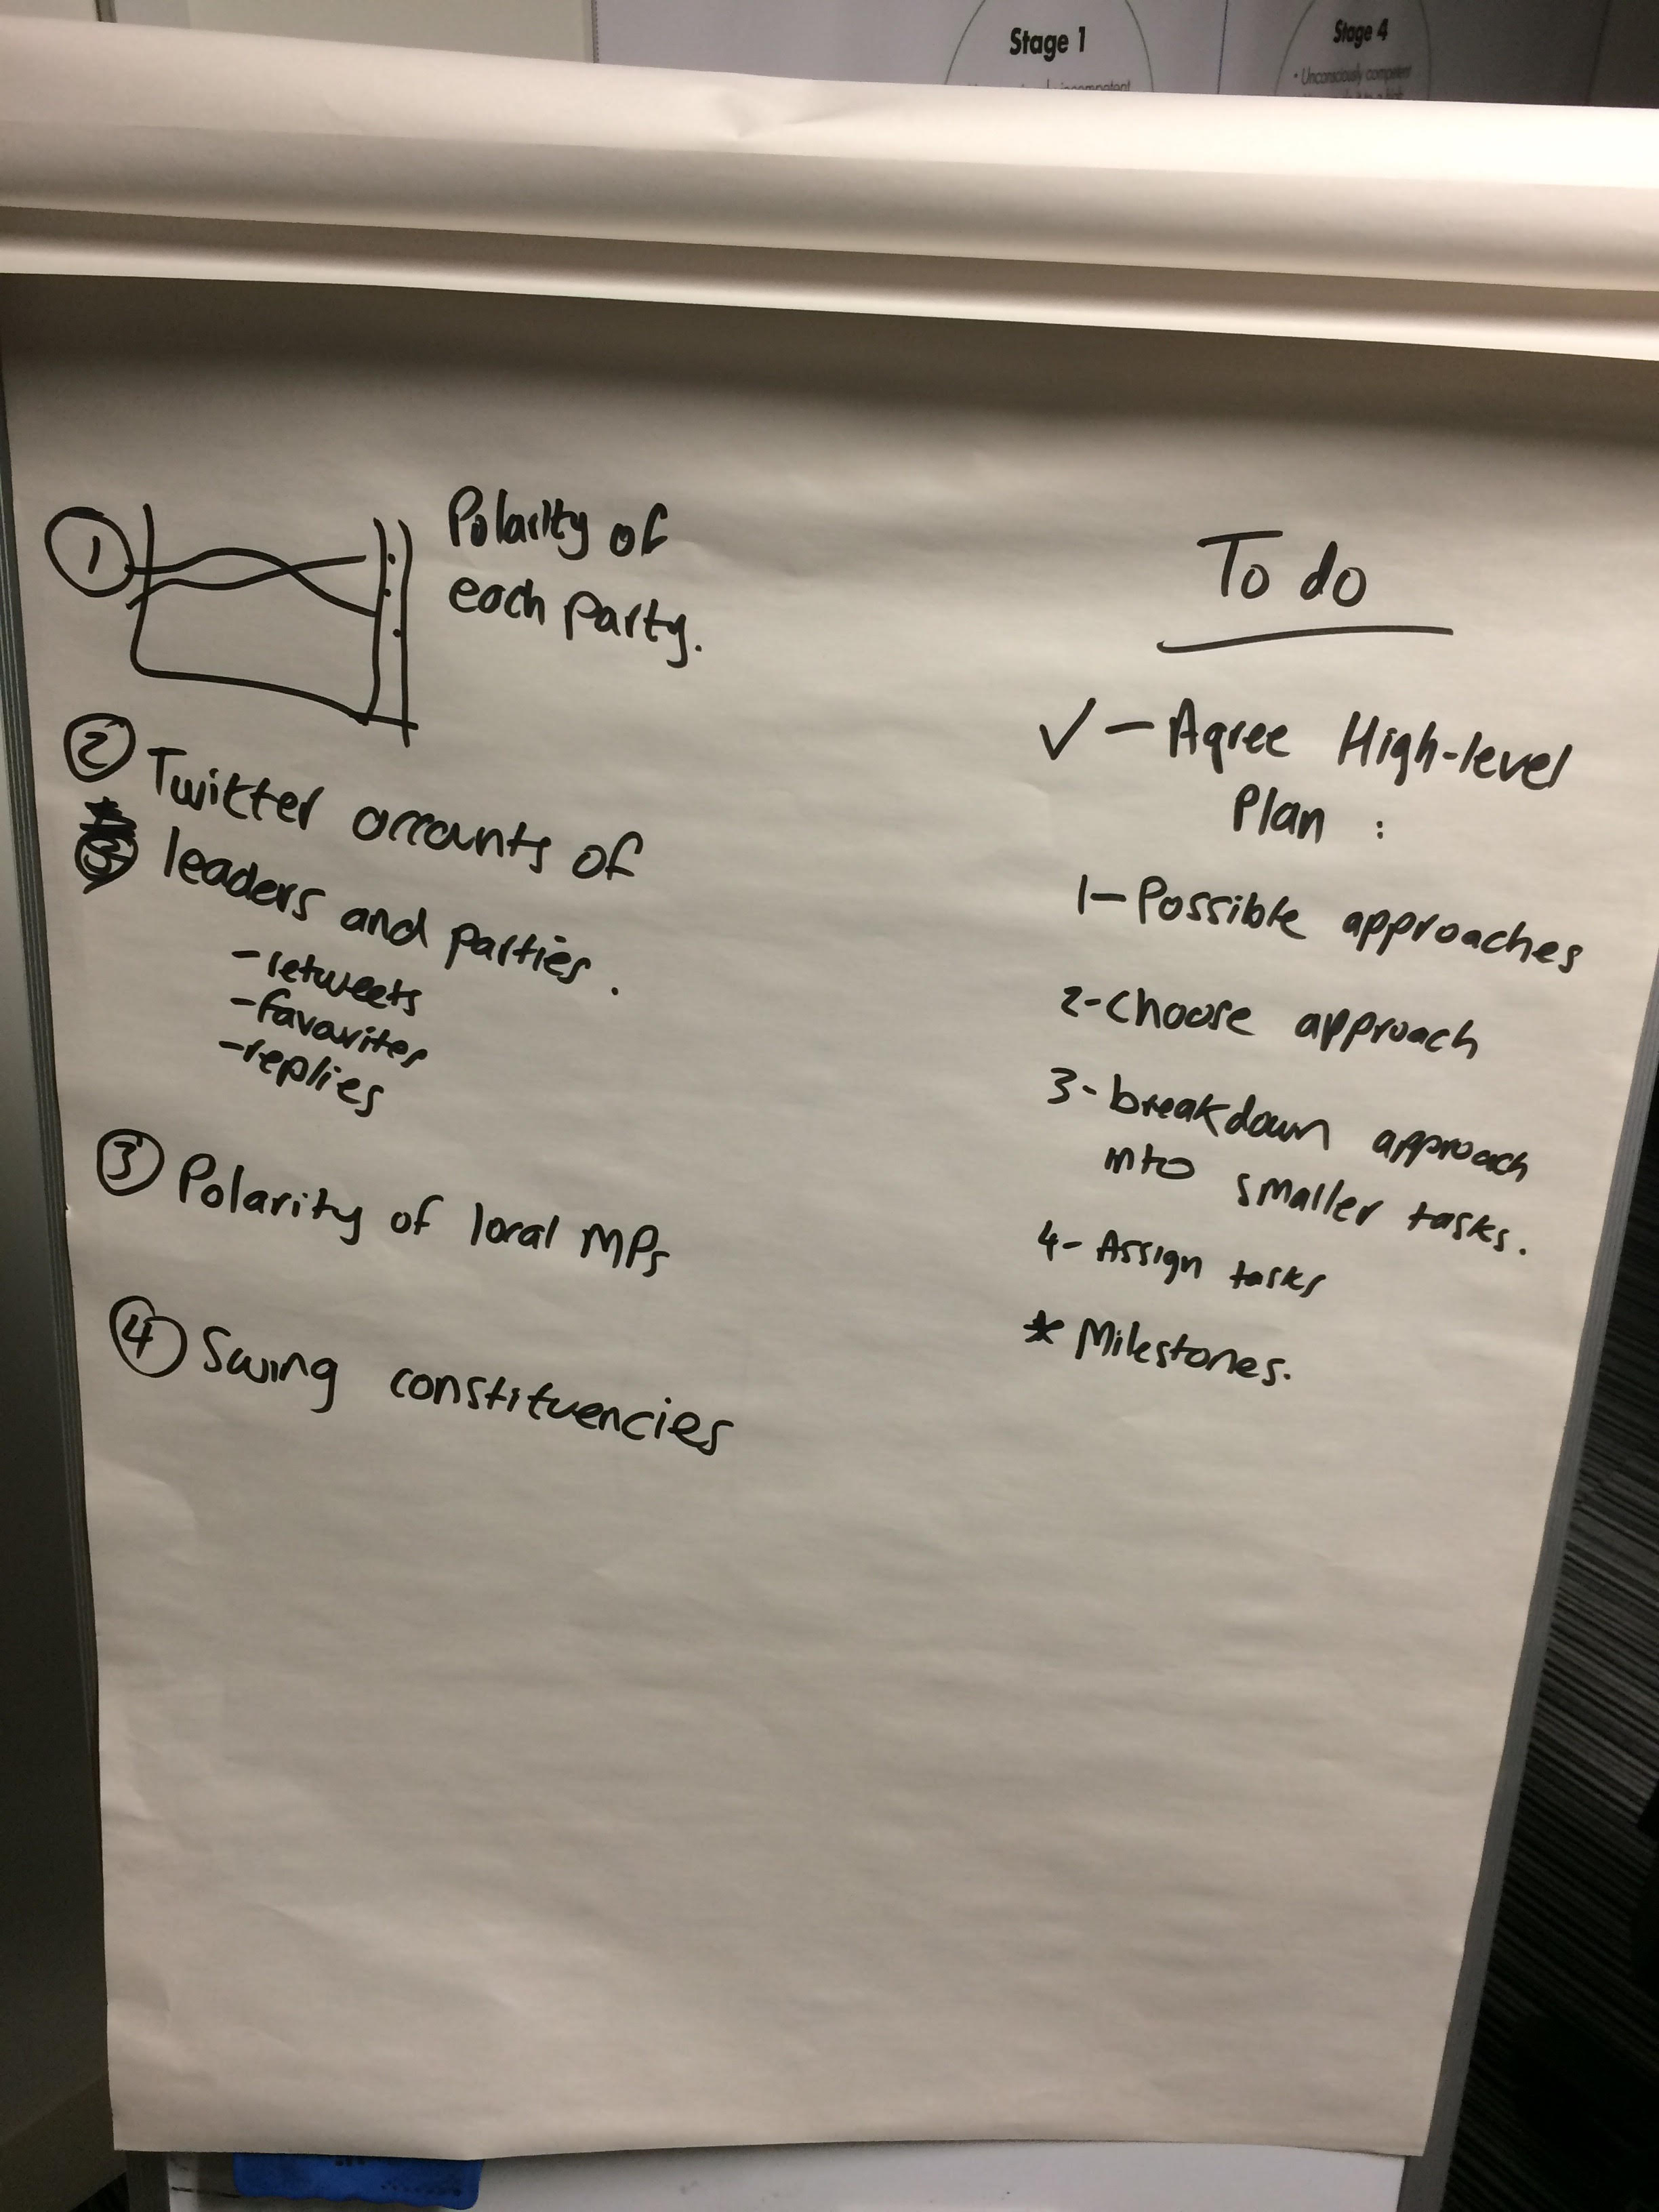 Stage 1
Stage 4
• Unconsciously competent
1
Polarity of
each party.
2 Twitter accounts of
leaders and parties.
- retweets
- favorites
- replies
3 Polarity of local MPs
4 Swing constituencies
To do
✓ - Agree High-level
Plan :
1- Possible approaches
2- choose approach
3- breakdown approach
into smaller tasks.
4- Assign tasks
* Milestones.